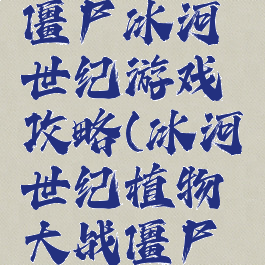 僵尸冰河
世纪游戏
攻略(冰河
世纪植物
大战僵尸